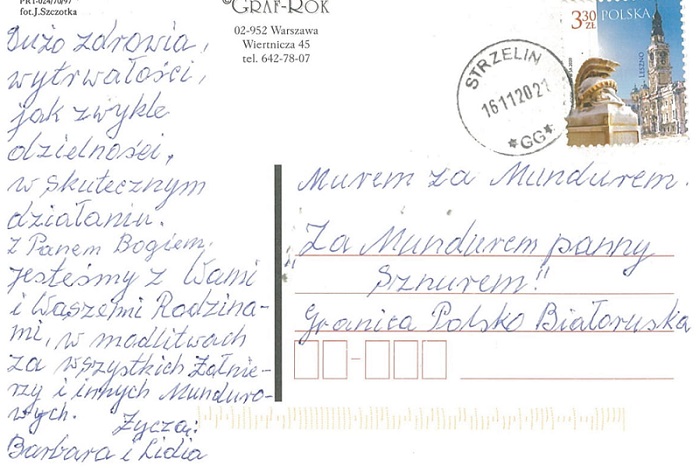 PRT-024/70/97
fot.J.Szczotka
© GRAF-ROK
02-952 Warszawa
Wiertnicza 45
tel. 642-78-07
3,30 ZŁ POLSKA
LESZNO
STRZELIN
16112021
*GG*
Dużo zdrowia,
wytrwałości,
jak zwykle
dzielności,
w skutecznym
działaniu.
Z Panem Bogiem,
jesteśmy z Wami
i Waszemi Rodzina-
mi, w modlitwach
za wszystkich Żołnie-
rzy i innych Munduro-
wych.
Życzą:
Barbara i Lidia
Murem za Mundurem.
"Za Mundurem panny
Sznurem!"
Granica Polsko Białoruska